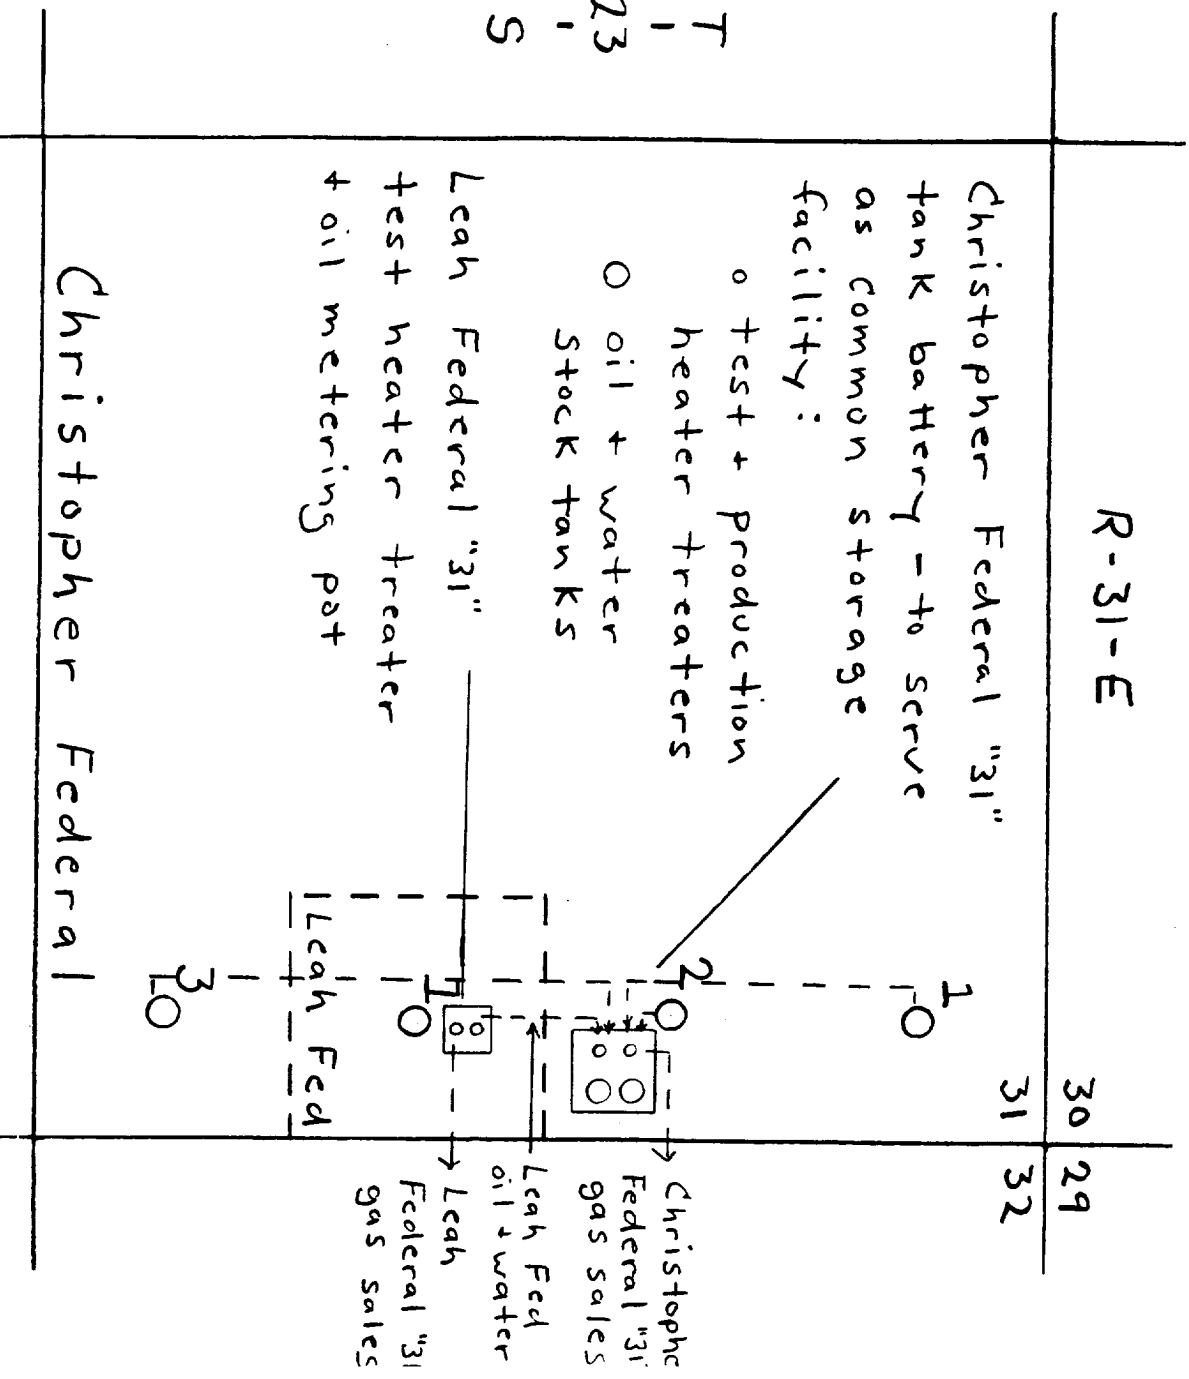 R-31-E
T
-
23
-
S
30
29
31
32
Christopher Federal "31"
tank battery - to serve
as common storage
facility:
o test + production
heater treaters
O oil + water
stock tanks
Leah Federal "31"
test heater treater
+ oil metering pot
Christopher Federal
1
2
1
3
Leah Fed
Christophe
Federal "31
gas sales
Leah Fed
oil + water
Leah
Federal "31
gas sales